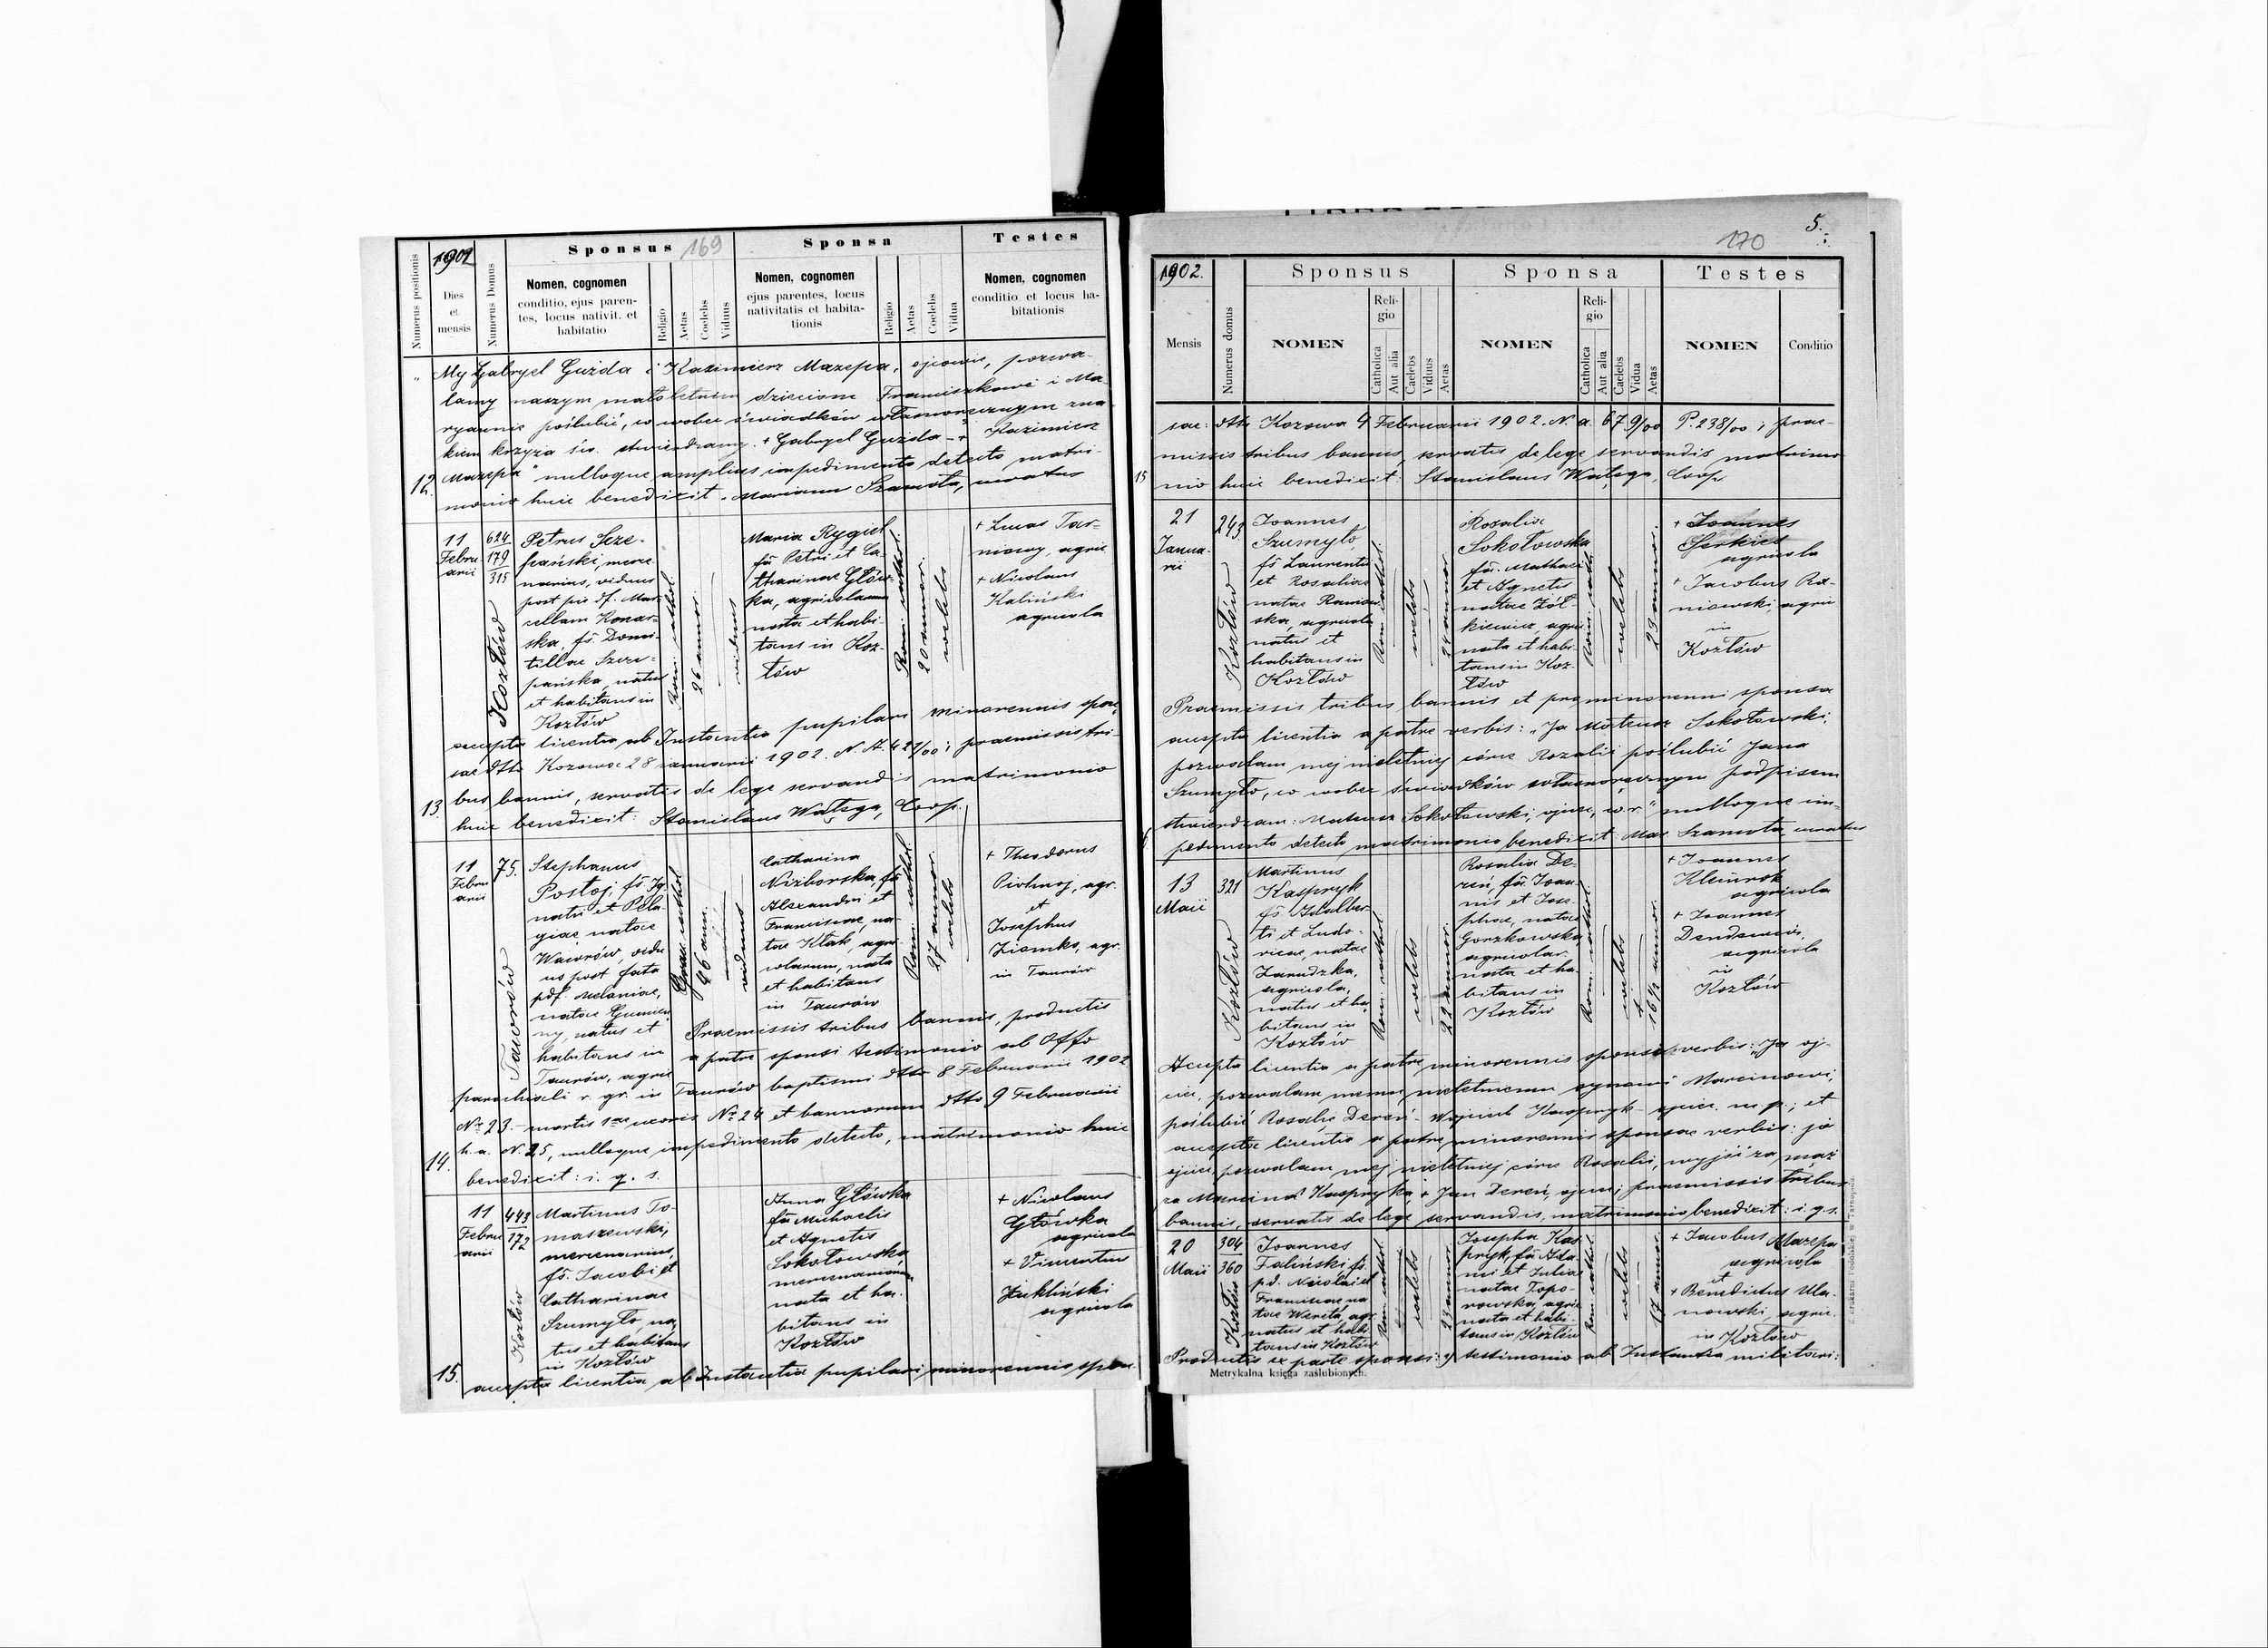 1902
Sponsus 169
Sponsa
Testes
Numerus positionis
Dies
et
mensis
Numerus Domus
Nomen, cognomen
conditio, ejus paren-
tes, locus nativit. et
habitatio
Religio
Aetas
Coelebs
Viduus
Nomen, cognomen
ejus parentes, locus
nativitatis et habita-
tionis
Religio
Aetas
Coelebs
Vidua
Nomen, cognomen
conditio et locus ha-
bitationis
My Gabryel Guzda i Kazimierz Mazepa, ojcowie, pozwa-
lamy naszym małoletnim dzieciom Franciszkowi i Ma-
ryannie poślubić, co wobec świadków własnoręcznym zna-
kiem krzyża św. stwierdzamy. + Gabryel Guzda - + Kazimierz
Mazepa" nulloque amplius impedimento detecto matri-
12. monio huic benedixit. Marianus Szamota, curatus
11
Febru
arii
624
179
315
Kozłów
Petrus Szcze-
pański, merce
narius, viduus
post pie df. Mar
cellam Konar-
ska, fs. Domi-
tillae Szcze-
pańska, natus
et habitans in
Kozłów
Rom. cathol.
26 annor.
viduus
Maria Rygiel
fa Petri et Ca-
tharinae Głów-
ka, agricolarum
nata et habi-
tans in Koz-
łów
Rom. cathol.
20 annor.
coelebs
+ Lucas Tar-
nowy, agric
+ Nicolaus
Kaliński
agricola
accepta licentia ab Instantia pupilari minorennis spon-
sae dtto Kozowa 28 januarii 1902. N. A. 421/00; praemissis tri-
bus bannis, servatis de lege servandis matrimonio
13. huic benedixit: Stanislaus Wałęga, Coop.
11
Febru
arii
75.
Taurów
Stephanus
Postoj, fs. Ig-
natii et Pela-
giae natae
Waworów, vidu
us post fata
pdf. Melaniae,
natae Gumien
ny, natus et
habitans in
Taurów, agric
Graec. cathol.
46 ann.
viduus
Catharina
Nizborska, fa
Alexandri et
Franciscae, na-
tae Kłak, agri
colarum, nata
et habitans
in Taurów
Rom. cathol.
27 annor.
coelebs
+ Theodorus
Pichnoj, agr.
et
Josephus
Ziemko, agr.
in Taurów
Praemissis tribus bannis, productis
a patre sponsi testimonio ab Offo
parochiali r. gr. in Taurów baptismi dtto 8 Februarii 1902
Nr 23. - mortis 1ae uxoris Nr 24 et bannorum dtto 9 Februarii
h. a. N. 25, nulloque impedimento detecto, matrimonio huic
14. benedixit: i. q. s.
11
Febru
arii
443
172
Kozłów
Martinus To-
maszewski,
mercenarius,
fs. Jacobi et
Catharinae
Szumyło, na-
tus et habitans
in Kozłów
Anna Główka
fa Michaelis
et Agnetis
Sokołowska,
mercenariorum
nata et ha-
bitans in
Kozłów
+ Nicolaus
Główka
agricola
+ Vincentius
agricola
15. accepta licentia ab Instantia pupilari minorennis spon-
5.
170
1902.
Sponsus
Sponsa
Testes
Mensis
Numerus domus
NOMEN
Reli-
gio
Catholica
Aut alia
Caelebs
Viduus
Aetas
NOMEN
Reli-
gio
Catholica
Aut alia
Caelebs
Vidua
Aetas
NOMEN
Conditio
sae: dtto Kozowa 4 Februarii 1902. N. a. 679/00 P. 238/00; prae-
missis tribus bannis, servatis de lege servandis matrimo
15 nio huic benedixit: Stanislaus Wałęga, Coop.
21
Janua-
rii
243
Kozłów
Joannes
Szumyło,
fs Laurentii
et Rosaliae
natae Raniow
ska, agricola
natus et
habitans in
Kozłów
Rom. cathol.
coelebs
24 annor.
Rosalia
Sokołowska
fa. Mathaei
et Agnetis
natae Żół-
kiewicz, agri
nata et habi-
tans in Koz-
łów
Rom. cath.
coelebs
23 annor.
+ Joannes
Serkies
agricola
+ Jacobus Ra-
niewski, agric
in
Kozłów
Praemissis tribus bannis et pro minorenni sponsa
accepta licentia a patre verbis: „Ja Mateusz Sokołowski,
pozwalam mej nieletniej córce Rozalii poślubić Jana
Szumyło, co wobec świadków własnoręcznym podpisem
stwierdzam: Mateusz Sokołowski, ojciec, w. r." nulloque im-
pedimento detecto matrimonio benedixit: Mar. Szamota, curatus
13
Maii
321
Kozłów
Martinus
Kaspryk
fs. Adalber-
ti et Ludo-
vicae, natae
Zarudzka,
agricola,
natus et ha-
bitans in
Kozłów
Rom. cathol.
coelebs
22 annor.
Rosalia De-
reń, fa. Joan-
nis et Jose-
phae, natae
Gorzkowska
agricolar.
nata et ha-
bitans in
Kozłów
Rom. cathol.
coelebs
16½ annor.
+ Joannes
Kleinrok
agricola
+ Joannes
Dendewicz,
agricola
in
Kozłów
Accepta licentia a patre minorennis sponsi verbis: „Ja oj-
ciec, pozwalam memu nieletniemu synowi Marcinowi,
poślubić Rosalię Dereń - Wojciech Kaspryk - ojciec. m. p.; et
accepta licentia a patre minorennis sponsae verbis: ja
ojciec pozwalam mej nieletniej córce Rosalii, wyjść za mąż
za Marcina Kaspryka, + Jan Dereń, ojciec; praemissis tribus
bannis, servatis de lege servandis, matrimonio benedixit: i. q. s.
20
Maii
304
360
Kozłów
Joannes
Faliński fs.
pd. Nicolai et
Franciscae na
tae Wereta, agr.
natus et habi
tans in Kozłów
Rom. cathol.
coelebs
23 annor.
Josepha Kas
pryk, fa Ada-
mi et Juliae
natae Topo-
rowska, agric
nata et habi-
tans in Kozłów
Rom. cathol.
coelebs
17 annor.
+ Jacobus Mazepa
agricola
et
+ Benedictus Ula-
nowski, agric.
in Kozłów
Productis ex parte sponsi: testimonio ab Instantia militari:
Metrykalna księga zaślubionych.
Z drukarni Podolskiej w Tarnopolu.